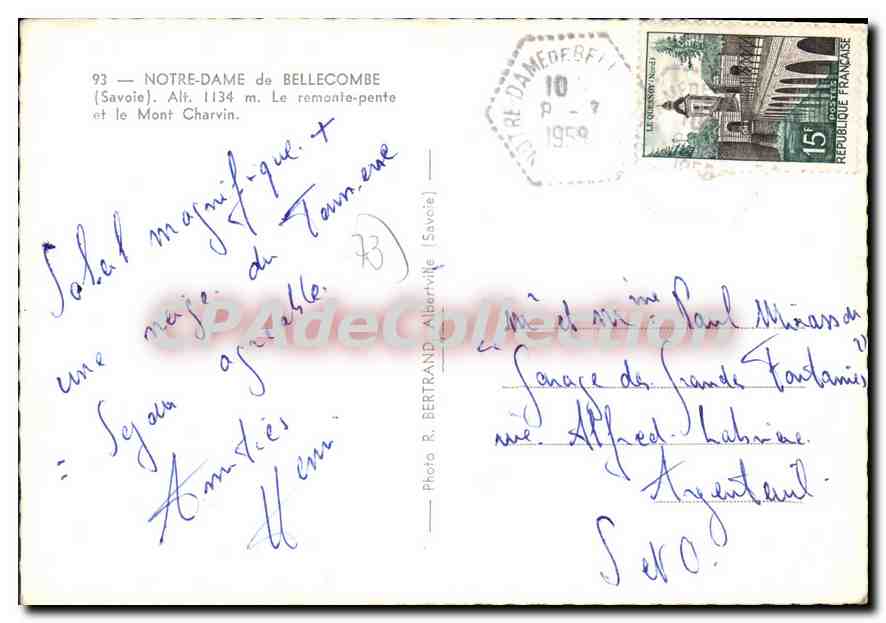 93 — NOTRE-DAME de BELLECOMBE
(Savoie). Alt. 1134 m. Le remonte-pente
et le Mont Charvin.
Soleil magnifique +
une neige du Tonnerre
= Séjour agréable.
Amitiés
Henri
73
Photo R. BERTRAND Albertville (Savoie)
NOTRE-DAME DE BELL
10
1959
LE QUESNOY (Nord)
15F
POSTES
RÉPUBLIQUE FRANÇAISE
CPAdeCollection
Mr et Mme Paul
"Garage des Grandes Fontaines"
rue Alfred Labrière
Argenteuil
S et O.